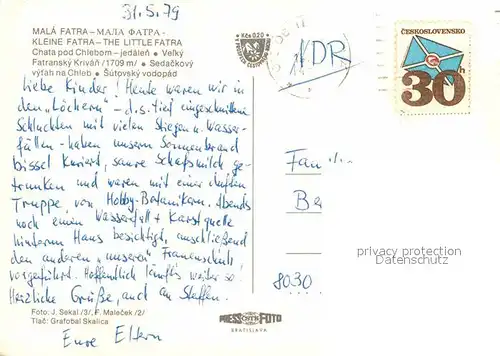 31.5.79
MALÁ FATRA – МАЛА ФАТРА –
KLEINE FATRA – THE LITTLE FATRA
Chata pod Chlebom – jedáleň • Veľký
Fatranský Kriváň /1709 m/ • Sedačkový
výťah na Chleb • Šútovský vodopád
Kčs 0,20
DDR
ČESKOSLOVENSKO
30h
Liebe Kinder! Heute waren wir in
den „Löchern“ – d.s. tief eingeschnittene
Schluchten mit vielen Stiegen u. Wasser-
fällen – haben unseren Sonnenbrand
bissel kuriert, saure Schafsmilch ge-
trunken und waren mit einer duften
Truppe von Hobby-Botanikern. Abends
noch einen Wasserfall + Karstquelle
hinterm Haus besichtigt, anschließend
den anderen „unseren“ Franzenschuh
vorgeführt. Hoffentlich läufts weiter so!
Herzliche Grüße, auch an Steffen.
Eure Eltern
Fam
Be
8030
Foto: J. Sekal /3/, F. Maleček /2/
Tlač: Grafobal Skalica
PRESSFOTO
BRATISLAVA
privacy protection
Datenschutz